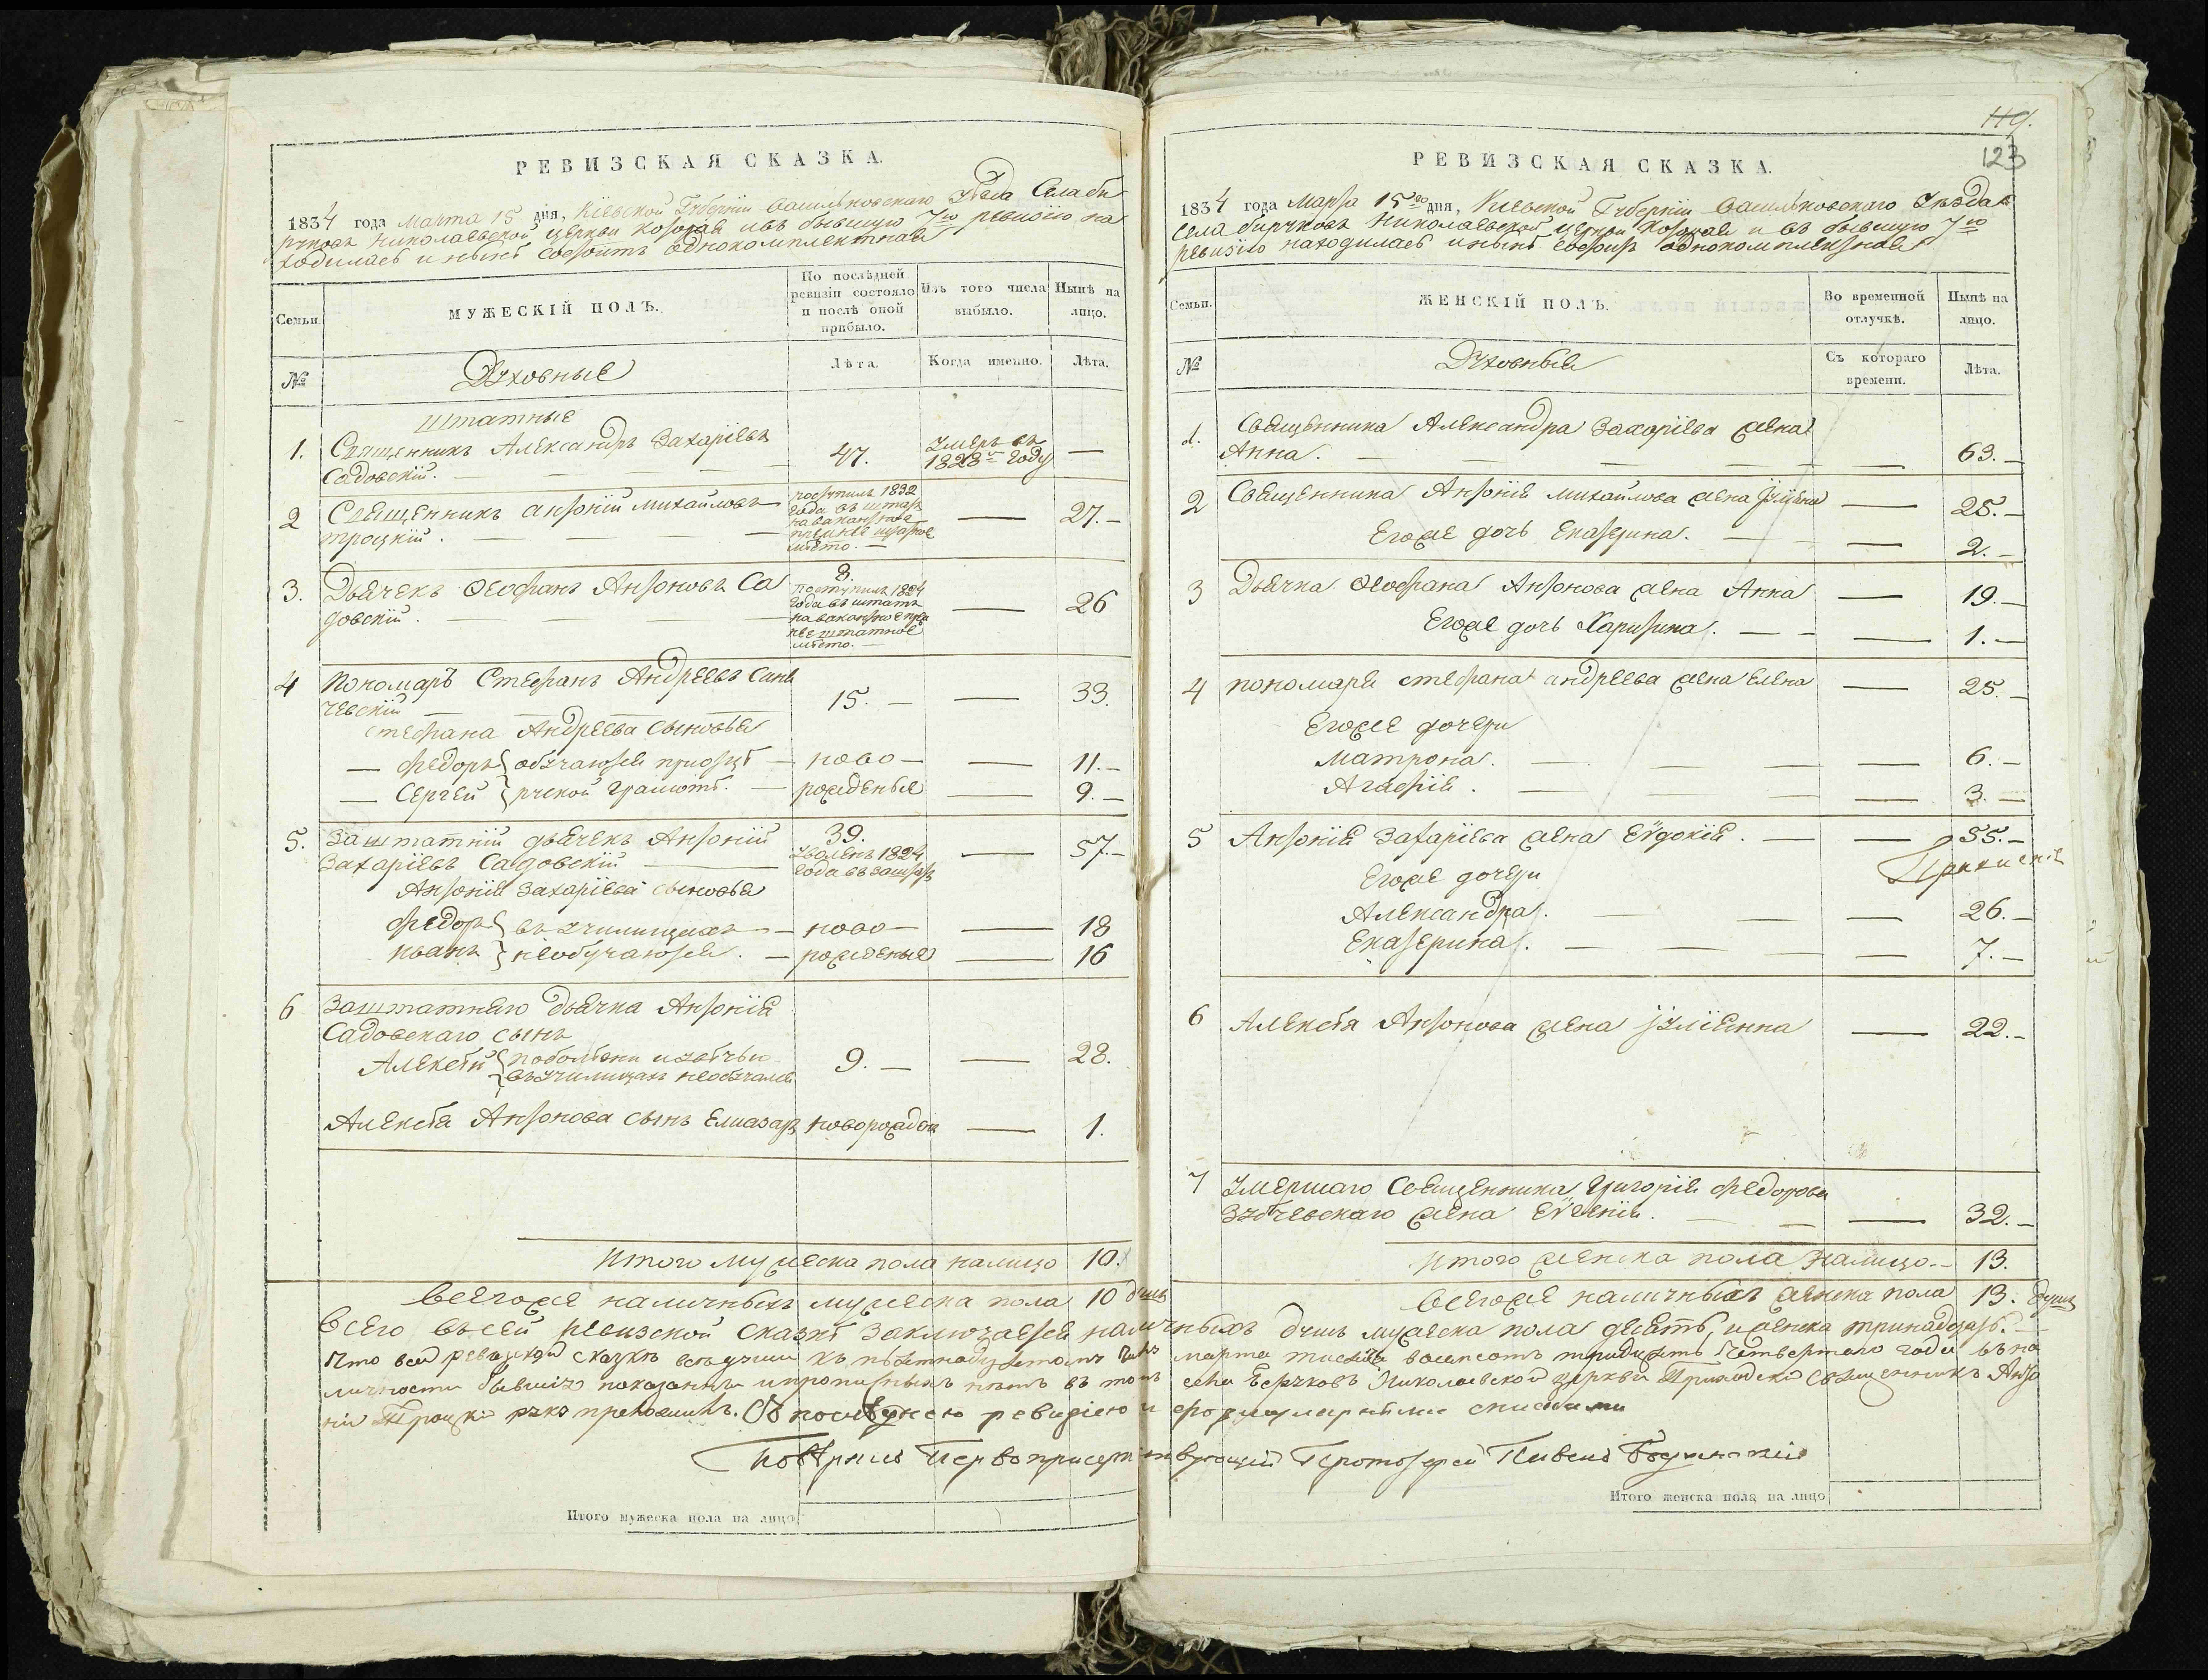 РЕВИЗСКАЯ СКАЗКА.
1834 года Марта 15 дня, Кіевской Губерніи Васильковскаго Уѣзда Села Би
рчковъ Николаевской церкви которая и въ бывшую 7ю ревизію на
ходилась и нынѣ состоитъ однокомплектная
Семьи.
МУЖЕСКІЙ ПОЛЪ.
По послѣдней ревизіи состояло и послѣ оной прибыло.
Изъ того числа выбыло.
Нынѣ на лицо.
№
Духовные
Лѣта.
Когда именно.
Лѣта.
Штатные
1. Священникъ Александръ Захаріевъ
Садовскій. 47. Умеръ въ 1828м году —
2 Священникъ Антоній Михайловъ
Троцкій. поступилъ 1832 года въ штатъ на вакантное прежнее штатное мѣсто. — 27.
3. Дьячекъ Ѳеофанъ Антоновъ Са
довскій. 8. Поступилъ 1824 года въ штатъ на вакантное преж нее штатное мѣсто. — 26
4 Пономаръ Стефанъ Андреевъ Синь
чевскій 15. — 33.
Стефана Андреева сыновья
— Федоръ } обучаются при отцѣ — ново — 11.
— Сергей } руской грамотѣ. — рожденые — 9.
5. Заштатній дьячекъ Антоній 39.
Захаріевъ Садовскій Уволенъ 1824 года въ заштатъ — 57.
Антонія Захаріева сыновья
Федоръ } въ училищахъ — ново — 18
Иванъ } необучаются. — рожденые — 16
6 Заштатнаго дьячка Антонія
Садовскаго сынъ
Алексѣй { по болѣзни и увѣчью
въ училищах необучался 9. — 28.
Алексѣя Антонова сынъ Елиазаръ новорожден — 1.
Итого мужеска пола налицо 10.
Всегоже наличныхъ мужеска пола 10 душъ
Итого мужеска пола на лицо
119.
123
РЕВИЗСКАЯ СКАЗКА.
1834 года Марта 15го дня, Кіевской Губерніи Васильковскаго Уѣзда
Села Бирчковъ Николаевской церкви которая и въ бывшую 7ю
ревизію находилась и нынѣ состоитъ однокомплектная
Семьи.
ЖЕНСКІЙ ПОЛЪ.
Во временной отлучкѣ.
Нынѣ на лицо.
№
Духовныя
Съ котораго времени.
Лѣта.
1. Священника Александра Захаріева жена
Анна. — 63.
2 Священника Антонія Михайлова жена — 25.
Егоже дочь Екатерина. — 2.
3 Дьячка Ѳеофана Антонова жена Анна — 19.
Егоже дочь Харитина. — 1.
4 Пономаря Стефана Андреева жена Елена — 25.
Егоже дочери
Матрона. — 6.
Агафія. — 3.
5 Антонія Захаріева жена Еѵдокія. — 55.
Егоже дочери
Александра. — 26.
Екатерина. — 7.
6 Алексѣя Антонова жена Іуліянна — 22.
7 Умершаго Священника Григорія Федорова
Зубчевскаго жена Еѵгенія. — 32.
Итого женска пола налицо 13.
Всегоже наличныхъ женска пола 13. душъ
Всего въ сей ревизской сказкѣ заключается наличныхъ душъ мужеска пола десять, и женска тринадцать.
Что в сей ревизской сказкѣ всѣ души къ пятнадцатому числу марта тысяча восемсотъ тридцать четвертого года въ на
личности бывшіе показанны и прописныхъ нѣтъ въ томъ села Бирчковъ Николаевской церкви Приходскій Священникъ Анто
ній Троцкій руку приложилъ. Съ послѣднею ревизіею и формулярными списками
повѣрилъ Первоприсутствующій Протоіерей
Итого женска пола на лицо